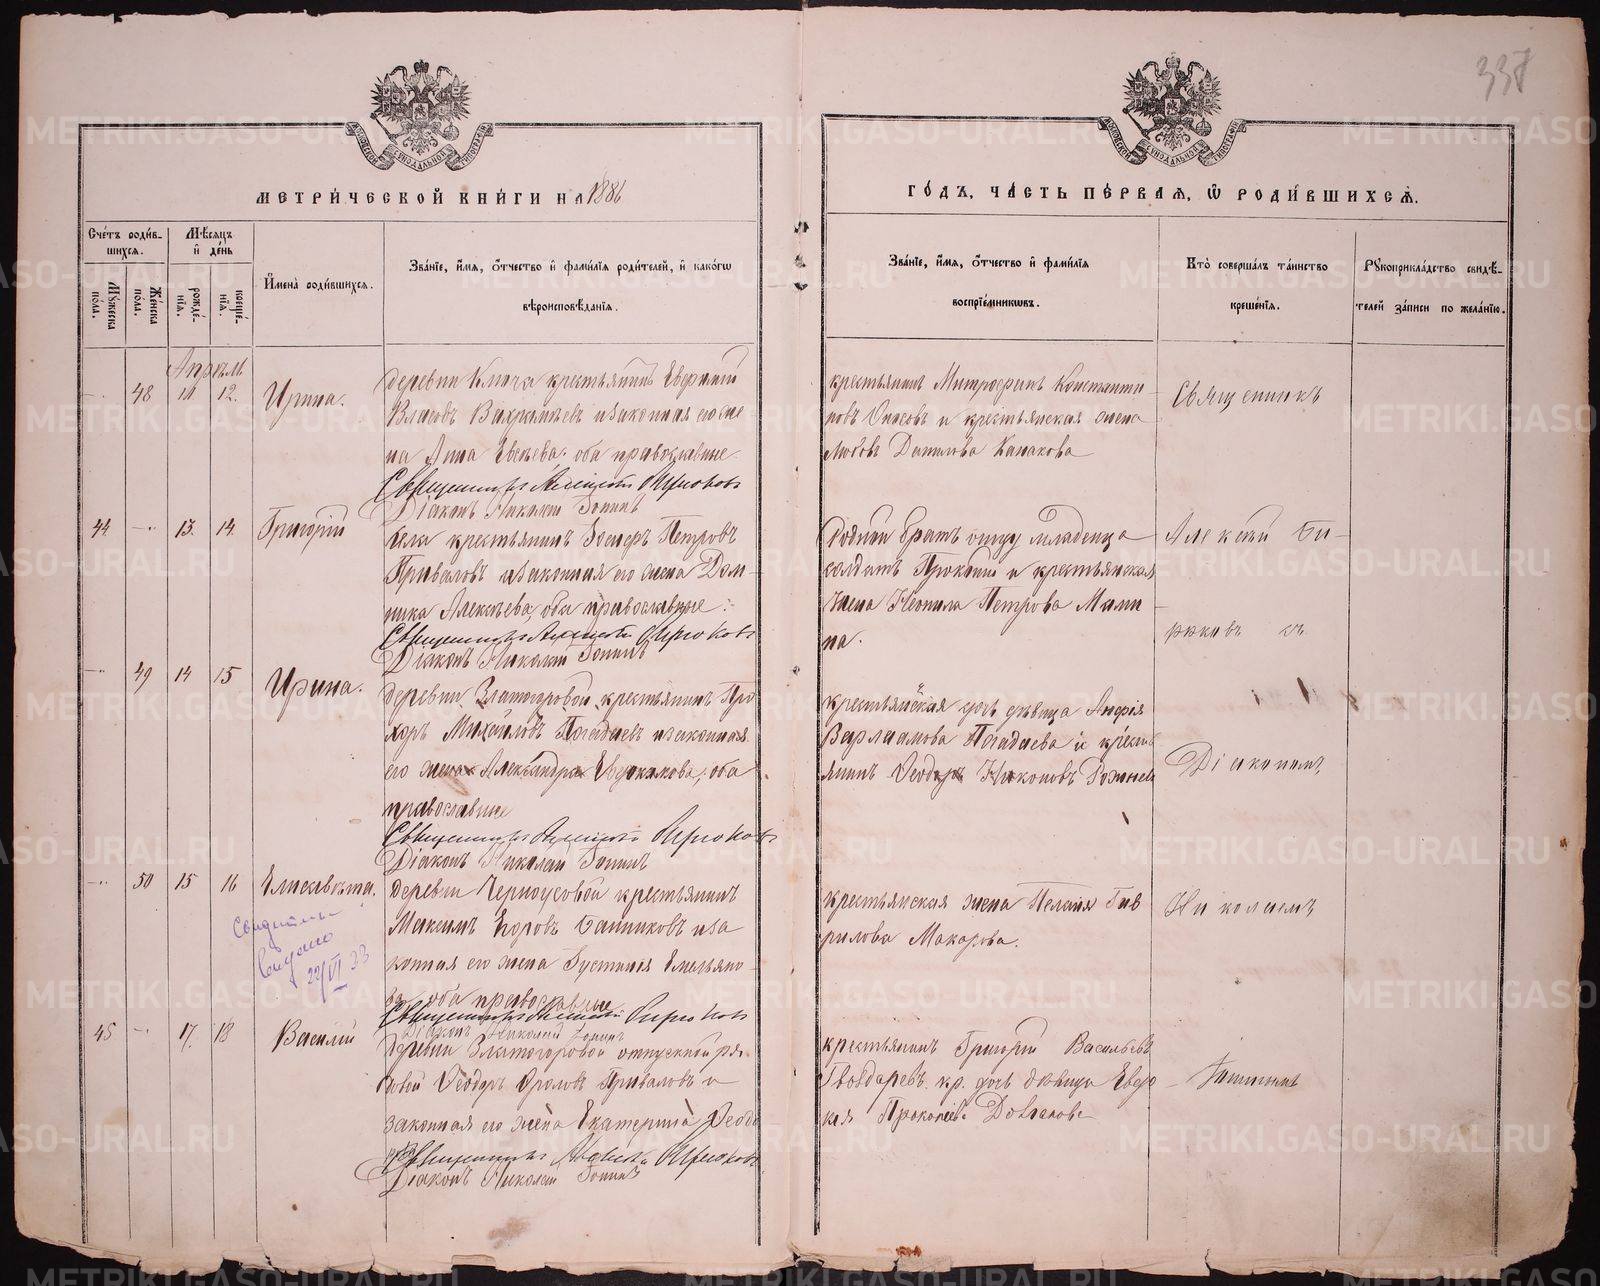 338
МЕТРИ́ЧЕСКОЙ КНИ́ГИ НА 1886
ГО́ДЪ, ЧА́СТЬ ПЕ́РВАЯ, Ѡ҆ РОДИ́ВШИХСѦ.
Сче́тъ роди́в-
шихся.
Мѣсяцъ
и де́нь
Мꙋжеска
по́ла.
Же́нска
по́ла.
рожде́-
нїя.
креще́-
нїя.
И҆мена̀ роди́вшихся.
Зва́нїе, и҆́мя, о҆́тчество и҆ фами́лїя роди́телей, и҆ како́гѡ
вѣроисповѣ́данїя.
Зва́нїе, и҆́мя, о҆́тчество и҆ фами́лїя
воспрїе́мникѡвъ.
Кто̀ соверша́лъ та́инство
креще́нїя.
Рꙋкоприкла́дство свидѣ́-
телей за́писи по жела́нїю.
Апрѣль
48 11 12. Ирина.
деревни Ключа крестьянинъ Евфимій
Власовъ Вахрамѣевъ и законная его же
на Анна Евсѣева. оба православные.
Священникъ Алексѣй Бирюковъ
Діаконъ Николай Топинъ
крестьянинъ Митрофанъ Константи
новъ и крестьянская жена
Любовь Данилова
Священникъ
44 13. 14. Григорій
Села крестьянинъ Петровъ
Приваловъ и законная его жена Дом-
ника Алексѣева, оба православные.
Священникъ Алексѣй Бирюковъ
Діаконъ Николай Топинъ
Родной братъ отцу младенца
солдатъ Прокопій и крестьянская
жена Неонила Петрова Мами
на.
Алексѣй Би-
рюковъ съ
49 14 15 Ирина.
деревни Златогоровой крестьянинъ Про
хоръ Михайловъ Погадаевъ и законная
его жена Александра Евдокимова, оба
православные
Священникъ Алексѣй Бирюковъ
Діаконъ Николай Топинъ
крестьянская дочь дѣвица
Варлаамова Погадаева и кресть
янинъ Ѳеодоръ Никоновъ
Діакономъ
50 15 16 Елисавета.
деревни Черноусовой крестьянинъ
Максимъ Егоровъ Банниковъ и за
конная его жена Емельяно
ва, оба православные
Священникъ Алексѣй Бирюковъ
Діаконъ Николай Топинъ
Свидѣтель
выдано
22/VI 33
крестьянская жена Пелагія Гав
рилова Макарова.
Николаемъ
45 17. 18 Василій
деревни Златогоровой отпускной ря
довой Ѳеодоръ Фроловъ Приваловъ и
законная его жена Екатерина Ѳеодо
Священникъ Алексѣй Бирюковъ
Діаконъ Николай Топинъ
крестьянинъ Григорій Васильевъ
Гвоздаревъ кр. дочь дѣвица Евдо
кія Прокопіева
Топинымъ
METRIKI.GASO-URAL.RU